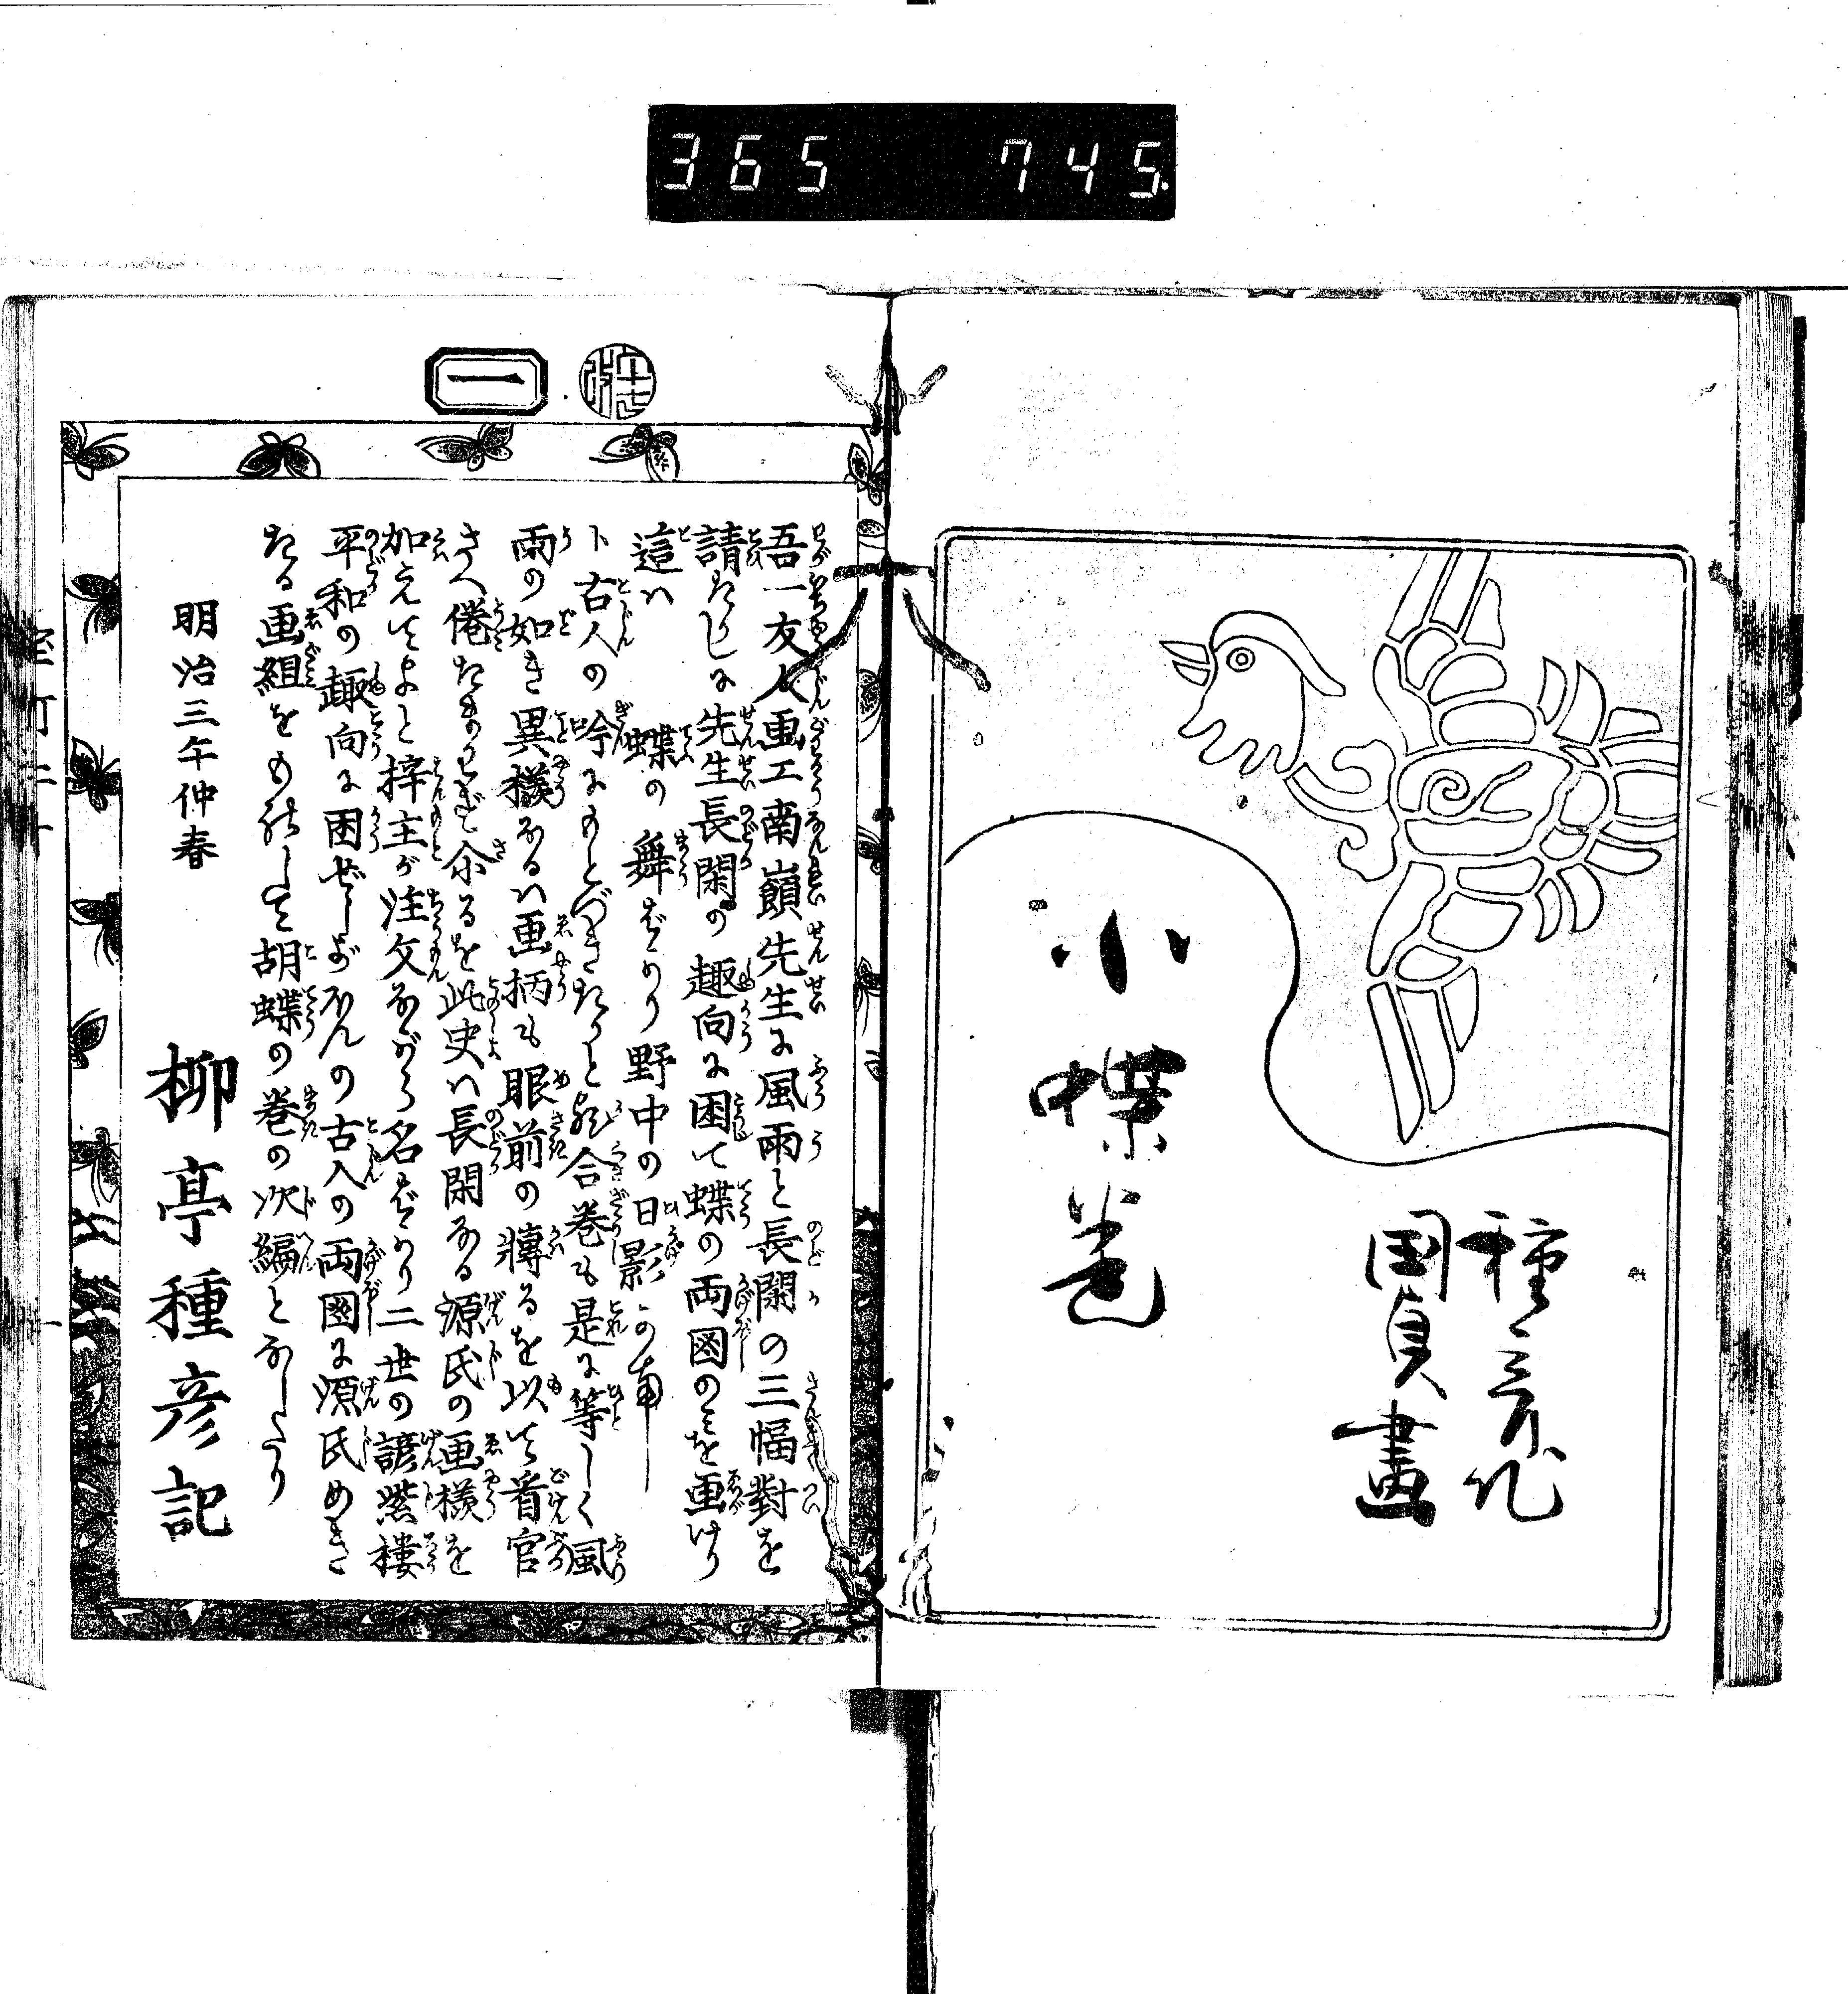 365 745
種彦作
国貞畫
小蝶卷
一
吾一友人画工南嶺先生に風雨と長閑の三幅對を
請たりしに先生長閑の趣向に困て蝶の両図のミを画けり
這ハ 蝶の舞ばかり野中の日影かな
ト古人の吟にもとづきたりと 合巻も是に等しく風
雨の如き異様なるハ画柄も眼前の轉るを以て看官
さへ倦たまハねど余るを此史ハ長閑なる源氏の画様を
加えてよと梓主が注文ながら名ばかり二世の諺紫楼
平和の趣向に困ぜしがゆへんの古人の両図に源氏めき
たる画組をものして胡蝶の巻の次編となしたり
明治三午仲春
柳亭種彦記